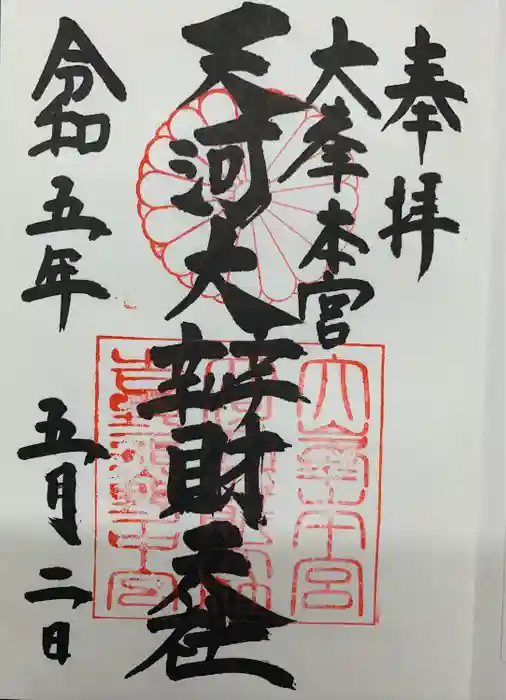 奉拝
大峯本宮
天河大辨財天社
令和五年 五月二日